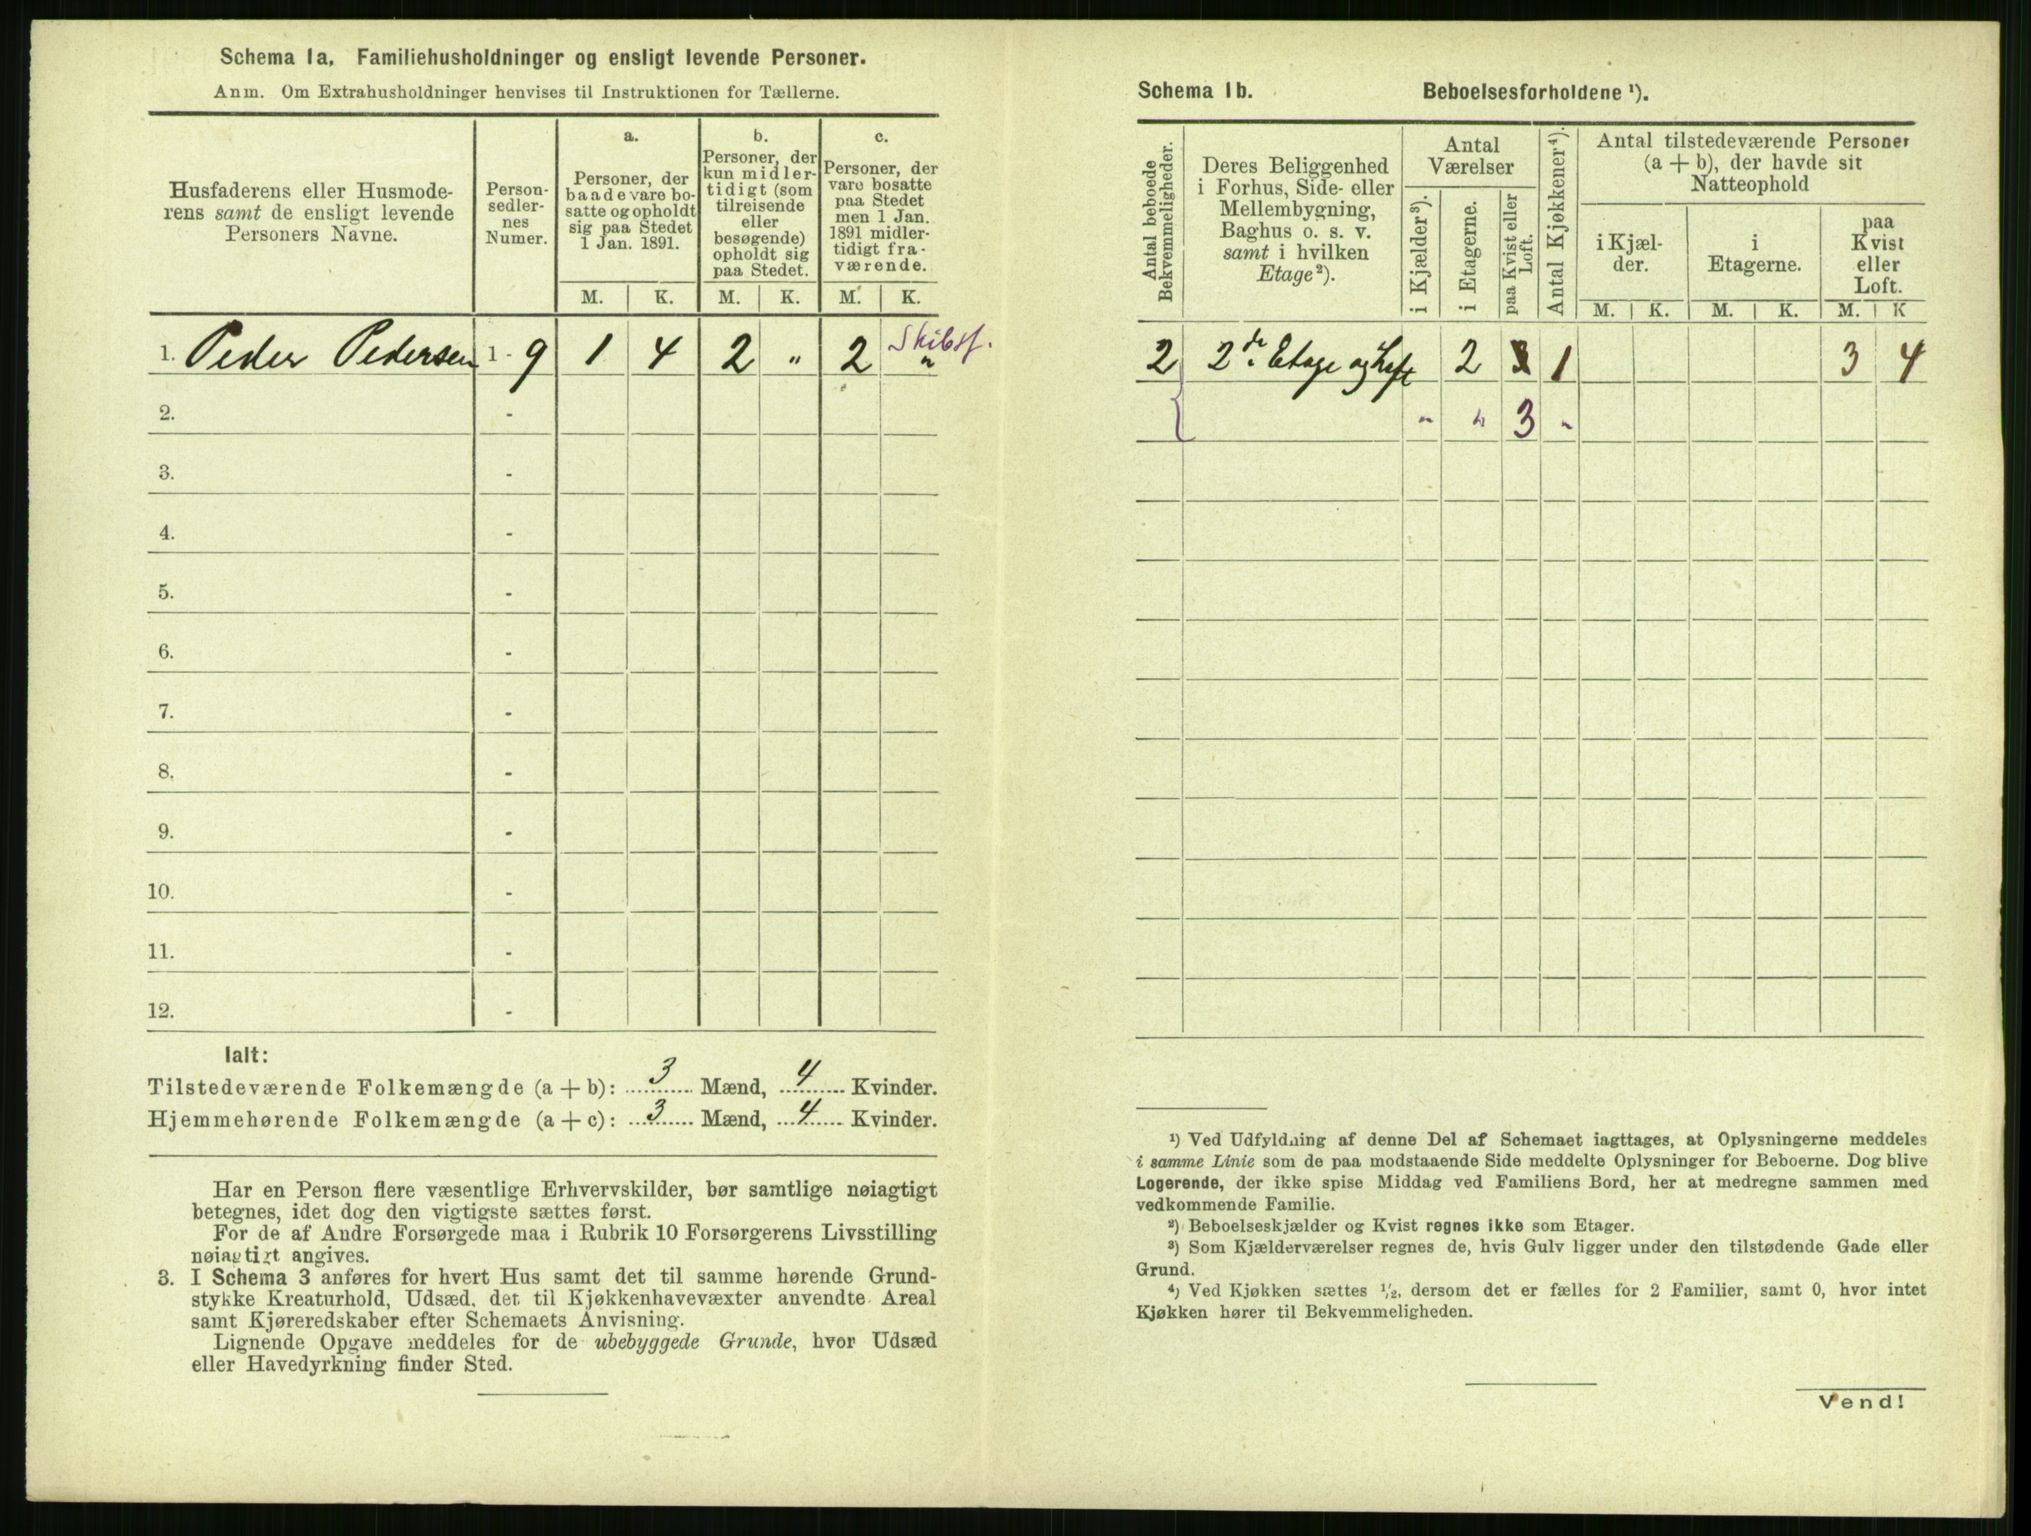 Schema 1a. Familiehusholdninger og ensligt levende Personer.
Anm. Om Extrahusholdninger henvises til Instruktionen for Tællerne.
Husfaderens eller Husmoderens samt de ensligt levende Personers Navne.
Personsedlernes Numer.
a.
Personer, der baade vare bosatte og opholdt sig paa Stedet 1 Jan. 1891.
b.
Personer, der kun midlertidigt (som tilreisende eller besøgende) opholdt sig paa Stedet.
c.
Personer, der vare bosatte paa Stedet men 1 Jan. 1891 midlertidigt fraværende.
M. K. M. K. M. K.
Skibsf.
1. Peder Pedersen 1 - 9 1 4 2 " 2 "
2. -
3. -
4. -
5. -
6. -
7. -
8. -
9. -
10. -
11. -
12. -
Ialt:
Tilstedeværende Folkemængde (a + b): 3 Mænd, 4 Kvinder.
Hjemmehørende Folkemængde (a + c): 3 Mænd, 4 Kvinder.
Har en Person flere væsentlige Erhvervskilder, bør samtlige nøiagtigt
betegnes, idet dog den vigtigste sættes først.
For de af Andre Forsørgede maa i Rubrik 10 Forsørgerens Livsstilling
nøiagtigt angives.
3. I Schema 3 anføres for hvert Hus samt det til samme hørende Grund-
stykke Kreaturhold, Udsæd, det til Kjøkkenhavevæxter anvendte Areal
samt Kjøreredskaber efter Schemaets Anvisning.
Lignende Opgave meddeles for de ubebyggede Grunde, hvor Udsæd
eller Havedyrkning finder Sted.
Schema 1b. Beboelsesforholdene ¹).
Antal beboede Bekvemmeligheder.
Deres Beliggenhed i Forhus, Side- eller Mellembygning, Baghus o. s. v. samt i hvilken Etage²).
Antal Værelser
i Kjælder³).
i Etagerne.
paa Kvist eller Loft.
Antal Kjøkkener⁴).
Antal tilstedeværende Personer (a + b), der havde sit Natteophold
i Kjælder.
i Etagerne.
paa Kvist eller Loft.
M. K. M. K. M. K
2 2de Etage og Loft 2 3 1 3 4
" " 3 "
¹) Ved Udfyldning af denne Del af Schemaet iagttages, at Oplysningerne meddeles
i samme Linie som de paa modstaaende Side meddelte Oplysninger for Beboerne. Dog blive
Logerende, der ikke spise Middag ved Familiens Bord, her at medregne sammen med
vedkommende Familie.
²) Beboelseskjælder og Kvist regnes ikke som Etager.
³) Som Kjælderværelser regnes de, hvis Gulv ligger under den tilstødende Gade eller
Grund.
⁴) Ved Kjøkken sættes ½, dersom det er fælles for 2 Familier, samt 0, hvor intet
Kjøkken hører til Bekvemmeligheden.
Vend!